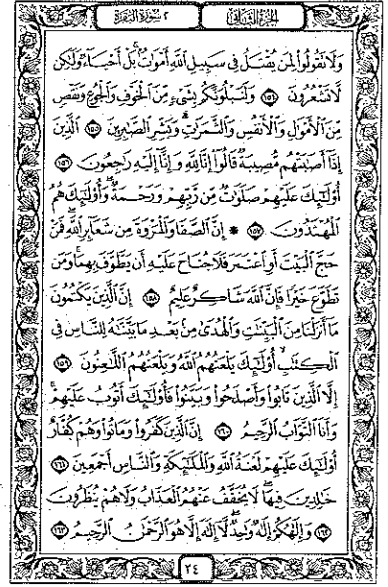 الجزء الثاني
٢ سورة البقرة
وَلَا تَقُولُوا۟ لِمَن يُقْتَلُ فِى سَبِيلِ ٱللَّهِ أَمْوَٰتٌۢ ۚ بَلْ أَحْيَآءٌ وَلَٰكِن
لَّا تَشْعُرُونَ ١٥٤ وَلَنَبْلُوَنَّكُم بِشَىْءٍ مِّنَ ٱلْخَوْفِ وَٱلْجُوعِ وَنَقْصٍ
مِّنَ ٱلْأَمْوَٰلِ وَٱلْأَنفُسِ وَٱلثَّمَرَٰتِ ۗ وَبَشِّرِ ٱلصَّٰبِرِينَ ١٥٥ ٱلَّذِينَ
إِذَآ أَصَٰبَتْهُم مُّصِيبَةٌ قَالُوٓا۟ إِنَّا لِلَّهِ وَإِنَّآ إِلَيْهِ رَٰجِعُونَ ١٥٦
أُو۟لَٰٓئِكَ عَلَيْهِمْ صَلَوَٰتٌ مِّن رَّبِّهِمْ وَرَحْمَةٌ ۖ وَأُو۟لَٰٓئِكَ هُمُ
ٱلْمُهْتَدُونَ ١٥٧ ۞ إِنَّ ٱلصَّفَا وَٱلْمَرْوَةَ مِن شَعَآئِرِ ٱللَّهِ ۖ فَمَنْ
حَجَّ ٱلْبَيْتَ أَوِ ٱعْتَمَرَ فَلَا جُنَاحَ عَلَيْهِ أَن يَطَّوَّفَ بِهِمَا ۚ وَمَن
تَطَوَّعَ خَيْرًا فَإِنَّ ٱللَّهَ شَاكِرٌ عَلِيمٌ ١٥٨ إِنَّ ٱلَّذِينَ يَكْتُمُونَ
مَآ أَنزَلْنَا مِنَ ٱلْبَيِّنَٰتِ وَٱلْهُدَىٰ مِنۢ بَعْدِ مَا بَيَّنَّٰهُ لِلنَّاسِ فِى
ٱلْكِتَٰبِ ۙ أُو۟لَٰٓئِكَ يَلْعَنُهُمُ ٱللَّهُ وَيَلْعَنُهُمُ ٱللَّٰعِنُونَ ١٥٩
إِلَّا ٱلَّذِينَ تَابُوا۟ وَأَصْلَحُوا۟ وَبَيَّنُوا۟ فَأُو۟لَٰٓئِكَ أَتُوبُ عَلَيْهِمْ ۚ
وَأَنَا ٱلتَّوَّابُ ٱلرَّحِيمُ ١٦٠ إِنَّ ٱلَّذِينَ كَفَرُوا۟ وَمَاتُوا۟ وَهُمْ كُفَّارٌ
أُو۟لَٰٓئِكَ عَلَيْهِمْ لَعْنَةُ ٱللَّهِ وَٱلْمَلَٰٓئِكَةِ وَٱلنَّاسِ أَجْمَعِينَ ١٦١
خَٰلِدِينَ فِيهَا ۖ لَا يُخَفَّفُ عَنْهُمُ ٱلْعَذَابُ وَلَا هُمْ يُنظَرُونَ
١٦٢ وَإِلَٰهُكُمْ إِلَٰهٌ وَٰحِدٌ ۖ لَّآ إِلَٰهَ إِلَّا هُوَ ٱلرَّحْمَٰنُ ٱلرَّحِيمُ ١٦٣
٢٤